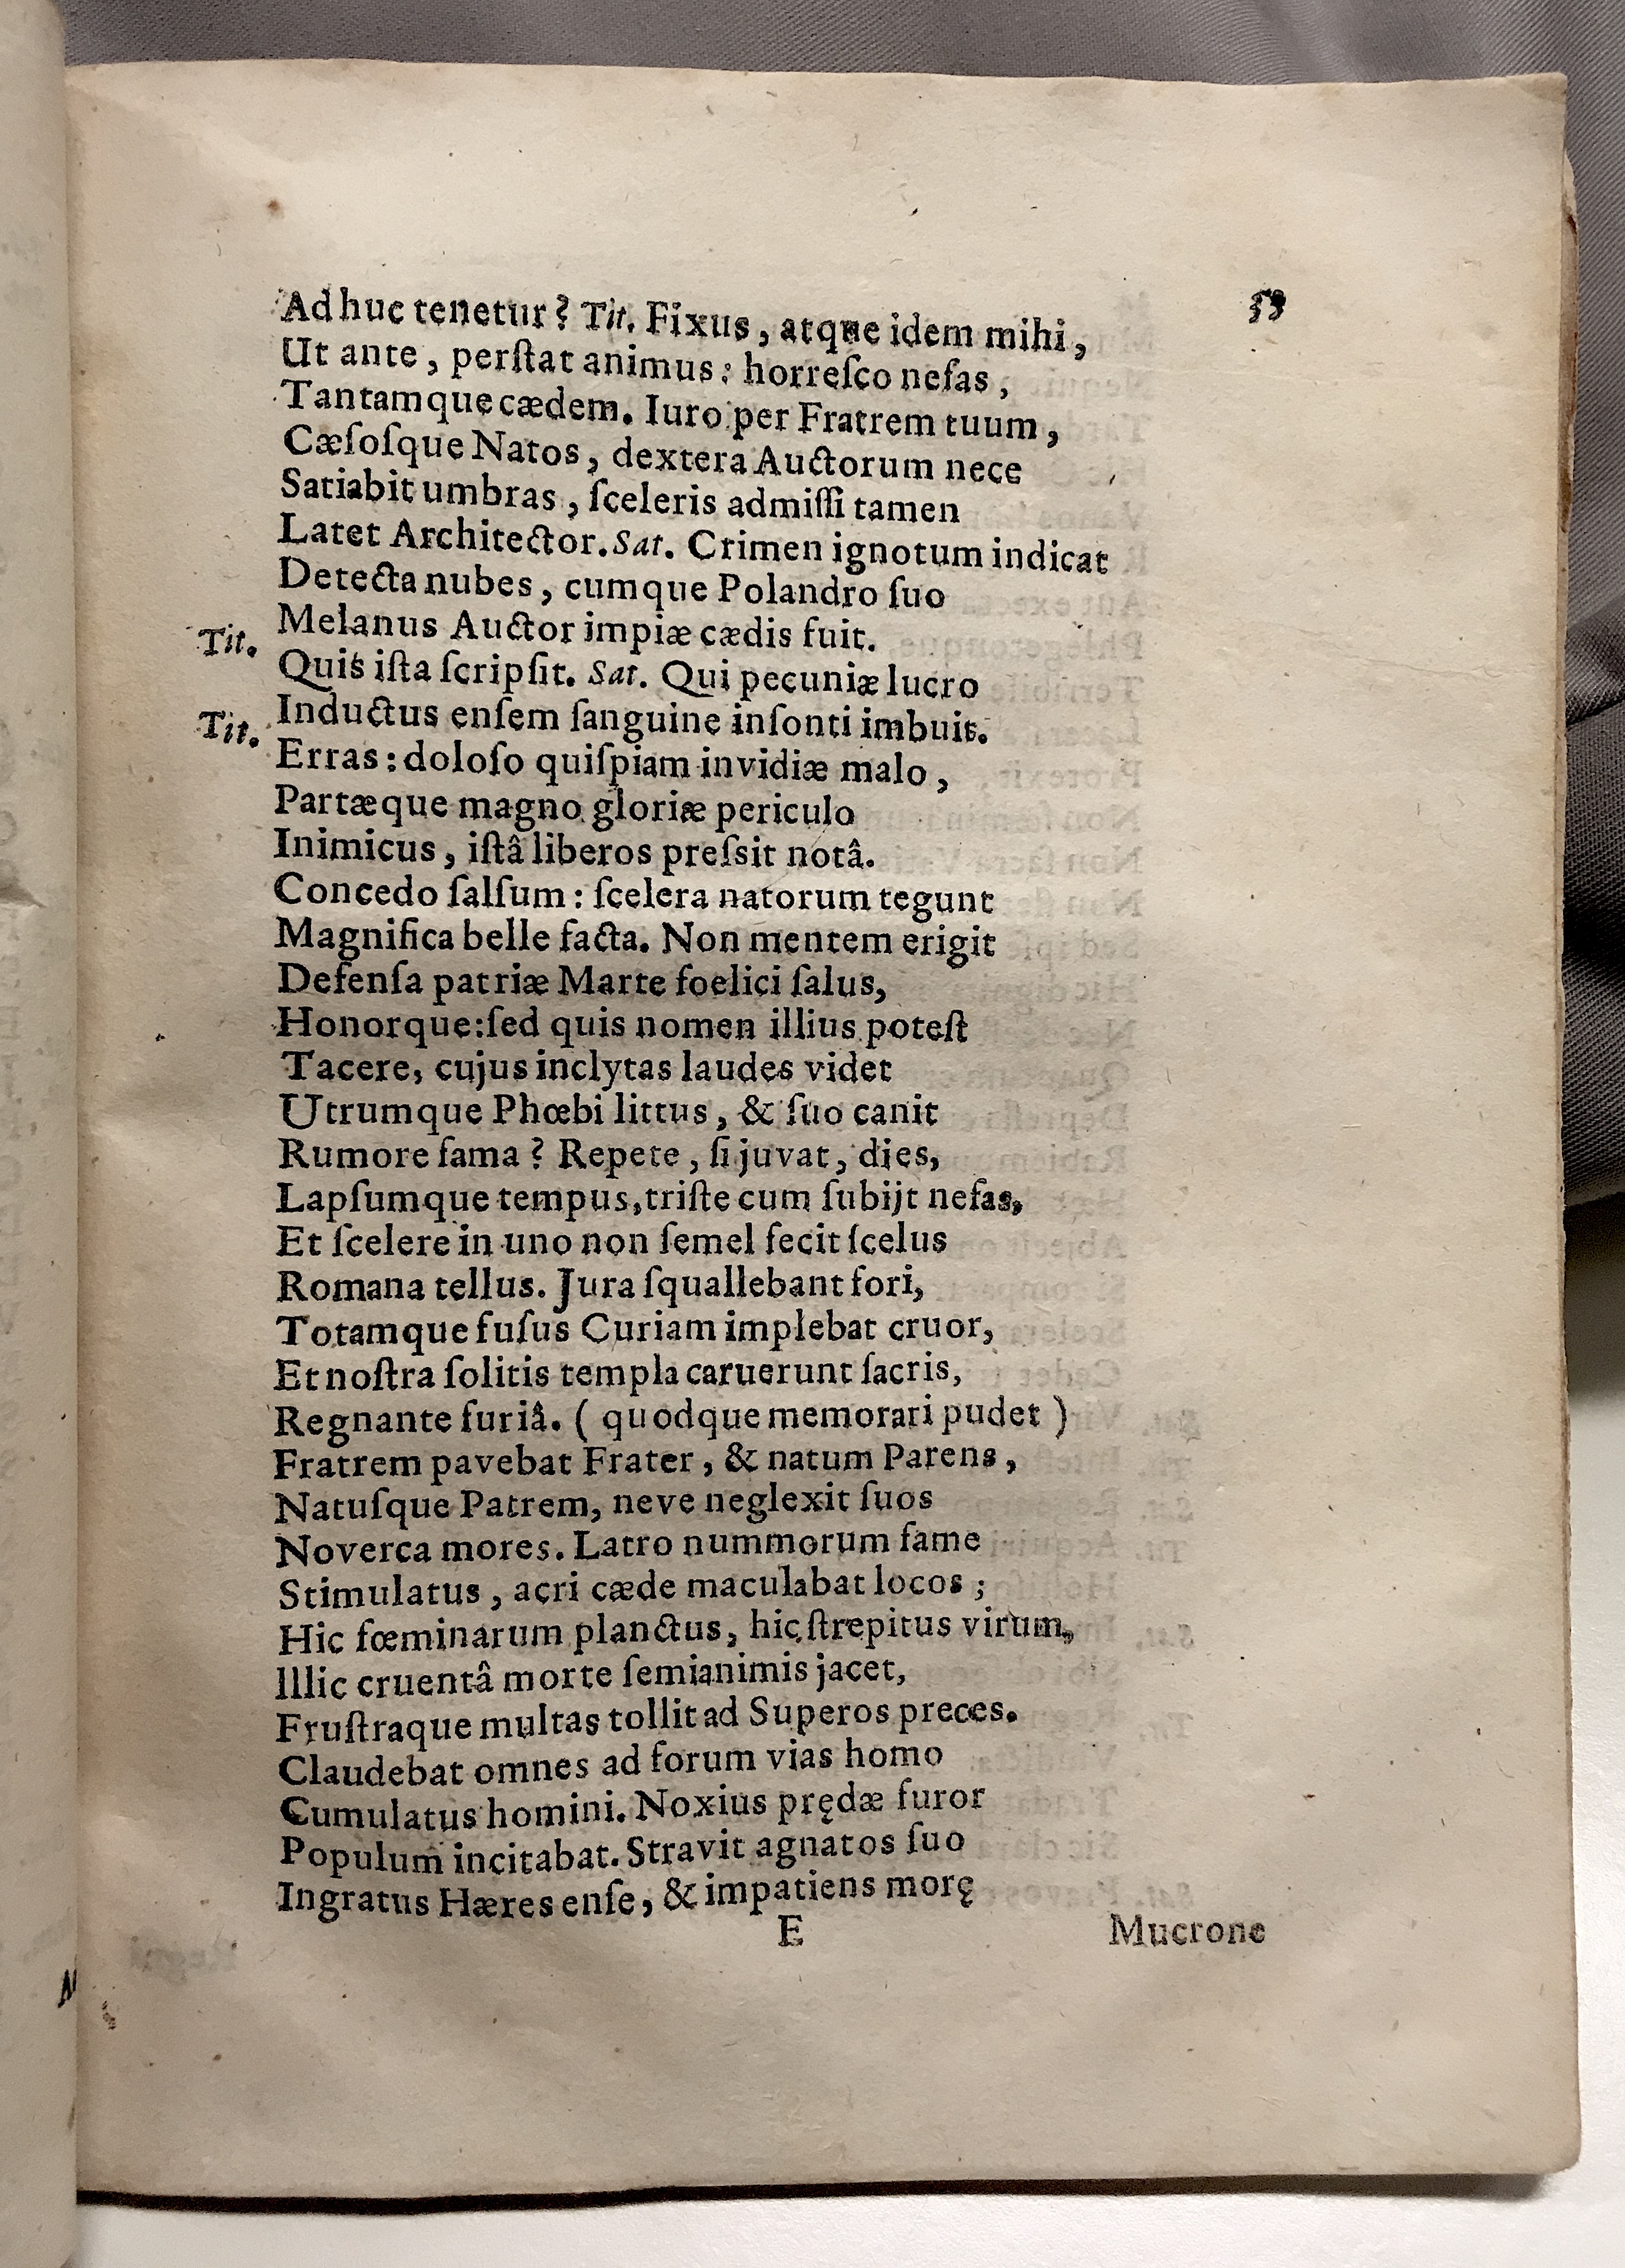 33
Adhuc tenetur? Tit. Fixus, atque idem mihi,
Ut ante, perſtat animus: horreſco nefas,
Tantamque cædem. Iuro per Fratrem tuum,
Cæſoſque Natos, dextera Auctorum nece
Satiabit umbras, ſceleris admiſſi tamen
Latet Architector. Sat. Crimen ignotum indicat
Detecta nubes, cumque Polandro ſuo
Melanus Auctor impiæ cædis fuit.
Tit. Quis iſta ſcripſit. Sat. Qui pecuniæ lucro
Inductus enſem ſanguine inſonti imbuit.
Tit. Erras: doloſo quiſpiam invidiæ malo,
Partæque magno gloriæ periculo
Inimicus, iſtâ liberos preſsit notâ.
Concedo falſum: ſcelera natorum tegunt
Magnifica belle facta. Non mentem erigit
Defenſa patriæ Marte foelici ſalus,
Honorque: ſed quis nomen illius poteſt
Tacere, cujus inclytas laudes videt
Utrumque Phœbi littus, & ſuo canit
Rumore fama? Repete, ſi juvat, dies,
Lapſumque tempus, triſte cum ſubijt nefas,
Et ſcelere in uno non ſemel fecit ſcelus
Romana tellus. Jura ſquallebant fori,
Totamque fuſus Curiam implebat cruor,
Et noſtra ſolitis templa caruerunt ſacris,
Regnante furiâ. ( quodque memorari pudet )
Fratrem pavebat Frater, & natum Parens,
Natuſque Patrem, neve neglexit ſuos
Noverca mores. Latro nummorum fame
Stimulatus, acri cæde maculabat locos;
Hic fœminarum planctus, hic ſtrepitus virum,
Illic cruentâ morte ſemianimis jacet,
Fruſtraque multas tollit ad Superos preces.
Claudebat omnes ad forum vias homo
Cumulatus homini. Noxius prędæ furor
Populum incitabat. Stravit agnatos ſuo
Ingratus Hæres enſe, & impatiens morę
E Mucrone